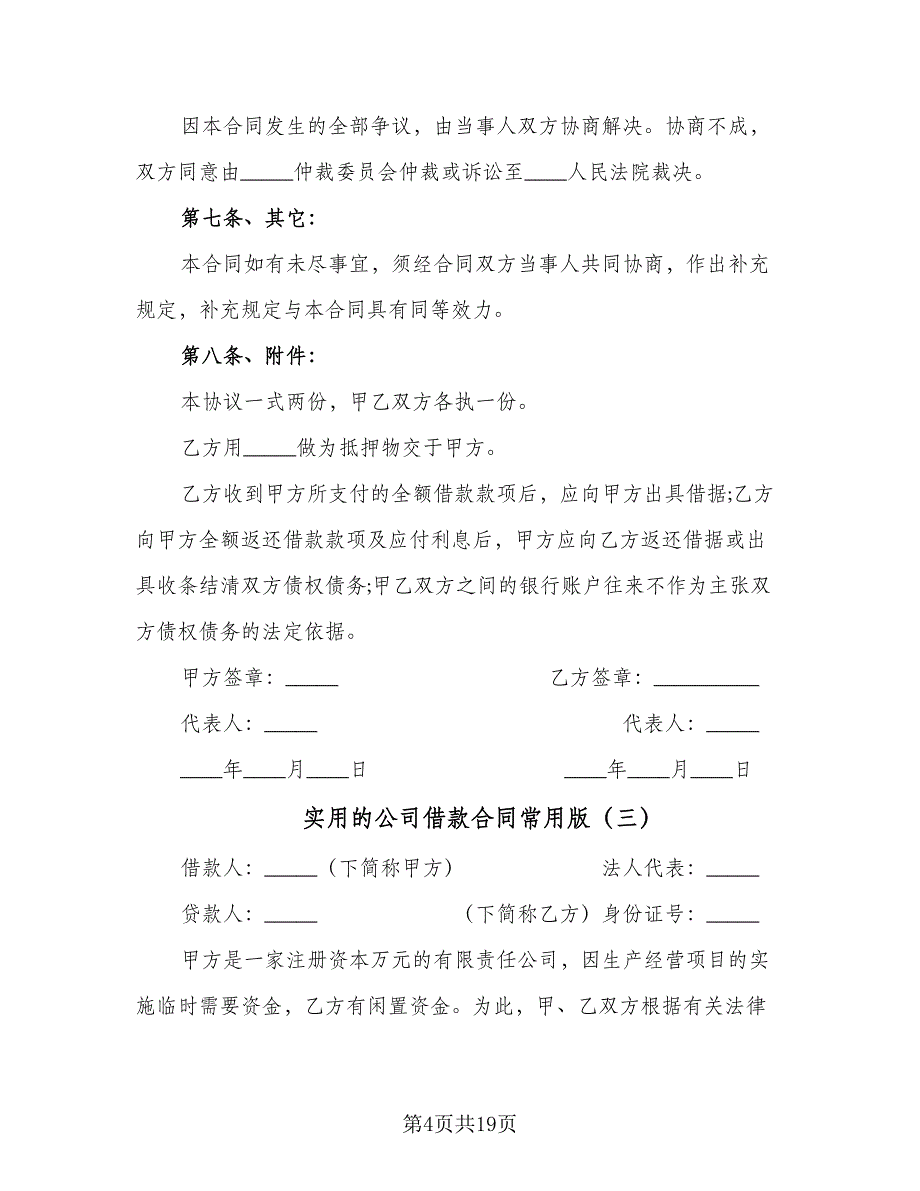 因本合同发生的全部争议，由当事人双方协商解决。协商不成，
双方同意由_____仲裁委员会仲裁或诉讼至____人民法院裁决。
第七条、其它：
本合同如有未尽事宜，须经合同双方当事人共同协商，作出补充
规定，补充规定与本合同具有同等效力。
第八条、附件：
本协议一式两份，甲乙双方各执一份。
乙方用_____做为抵押物交于甲方。
乙方收到甲方所支付的全额借款款项后，应向甲方出具借据;乙方
向甲方全额返还借款款项及应付利息后，甲方应向乙方返还借据或出
具收条结清双方债权债务;甲乙双方之间的银行账户往来不作为主张双
方债权债务的法定依据。
甲方签章：_____ 乙方签章：__________
代表人：_____ 代表人：_____
____年____月____日 ____年____月____日
实用的公司借款合同常用版（三）
借款人：_____（下简称甲方） 法人代表：_____
贷款人：_____ （下简称乙方）身份证号：_____
甲方是一家注册资本万元的有限责任公司，因生产经营项目的实
施临时需要资金，乙方有闲置资金。为此，甲、乙双方根据有关法律
第4页共19页